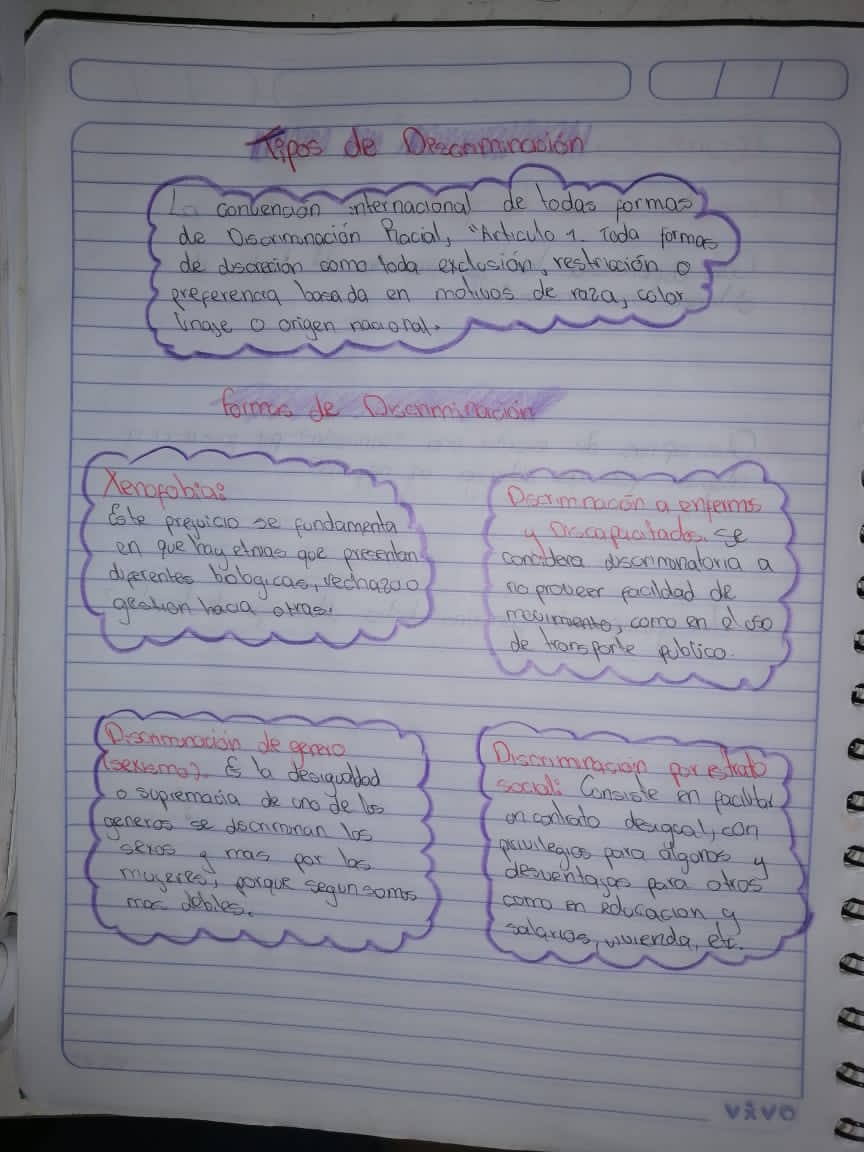 Tipos de Discriminación
La convención internacional de todas formas
de Discriminación Racial, "Articulo 1. Toda formas
de discreción como toda exclusión, restricción o
preferencia basada en motivos de raza, color
linage o origen nacional.
formas de Discriminación
Xenofobia:
Este prejuicio se fundamenta
en que hay etnias que presentan
diferentes biologicas, rechazo o
gestion hacia otras.
Discriminación a enfermos
y Discapacitados. se
considera discrimonatoria a
no proveer facilidad de
movimiento, como en el uso
de transporte publico.
Discriminación de genero
(sexismo). Es la desigualdad
o supremacia de uno de los
generos se discriminan los
sexos y mas por las
mugeres, porque segun somos
mas debles.
Discriminación por estrato
social: Consiste en facilitar
un contrato desigual, con
privilegios para algunos y
desventajas para otros
como en educacion y
salarios, vivienda, etc.
vivo